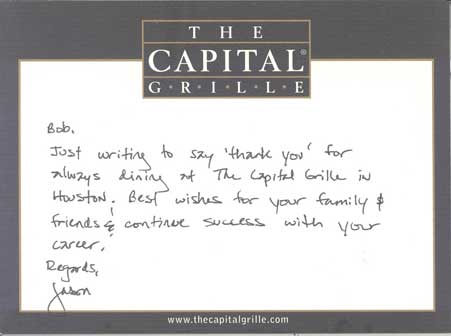 THE
CAPITAL®
G·R·I·L·L·E
Bob,
Just writing to say 'thank you' for
always dining at The Capital Grille in
Houston. Best wishes for your family &
friends & continue success with your
career.
Regards,
Jason
www.thecapitalgrille.com